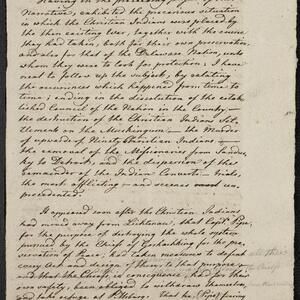 Having in the preceding
Narrative, exhibited the precarious situation
in which the Christian Indians were placed by
the then existing war, together with the course
they had taken, both for their own preservation
and also for that of the Delaware Nation, unto
whom they were to look for protection; I have
next to follow up the subject, by relating
the occurrences which happened from time to
time; ending in the dissolution of the estab-
lished Council of the Nation in the Country
the destruction of the Christian Indians Set-
tlements on the Muskingum — the Murder
of upwards of Ninety Christian Indians —
the removal of the Missionaries from Sandus-
ky to Detroit, and the dispersion of the
remainder of the Indian Converts — trials,
the most afflicting — and scenes un-
precedented.
It appeared soon after the Christian Indians
had moved away from Lichtenau, that Capt. Pipe,
for the purpose of destroying the whole system
pursued by the Chiefs of Goshachking for the pre-
servation of Peace, had taken measures to defeat
every act and design of theirs to that purpose,
and that the Chiefs, in consequence, had for their
own safety, been obliged to withdraw themselves,
and take refuge at Pittsburg. That he (Pipe) having